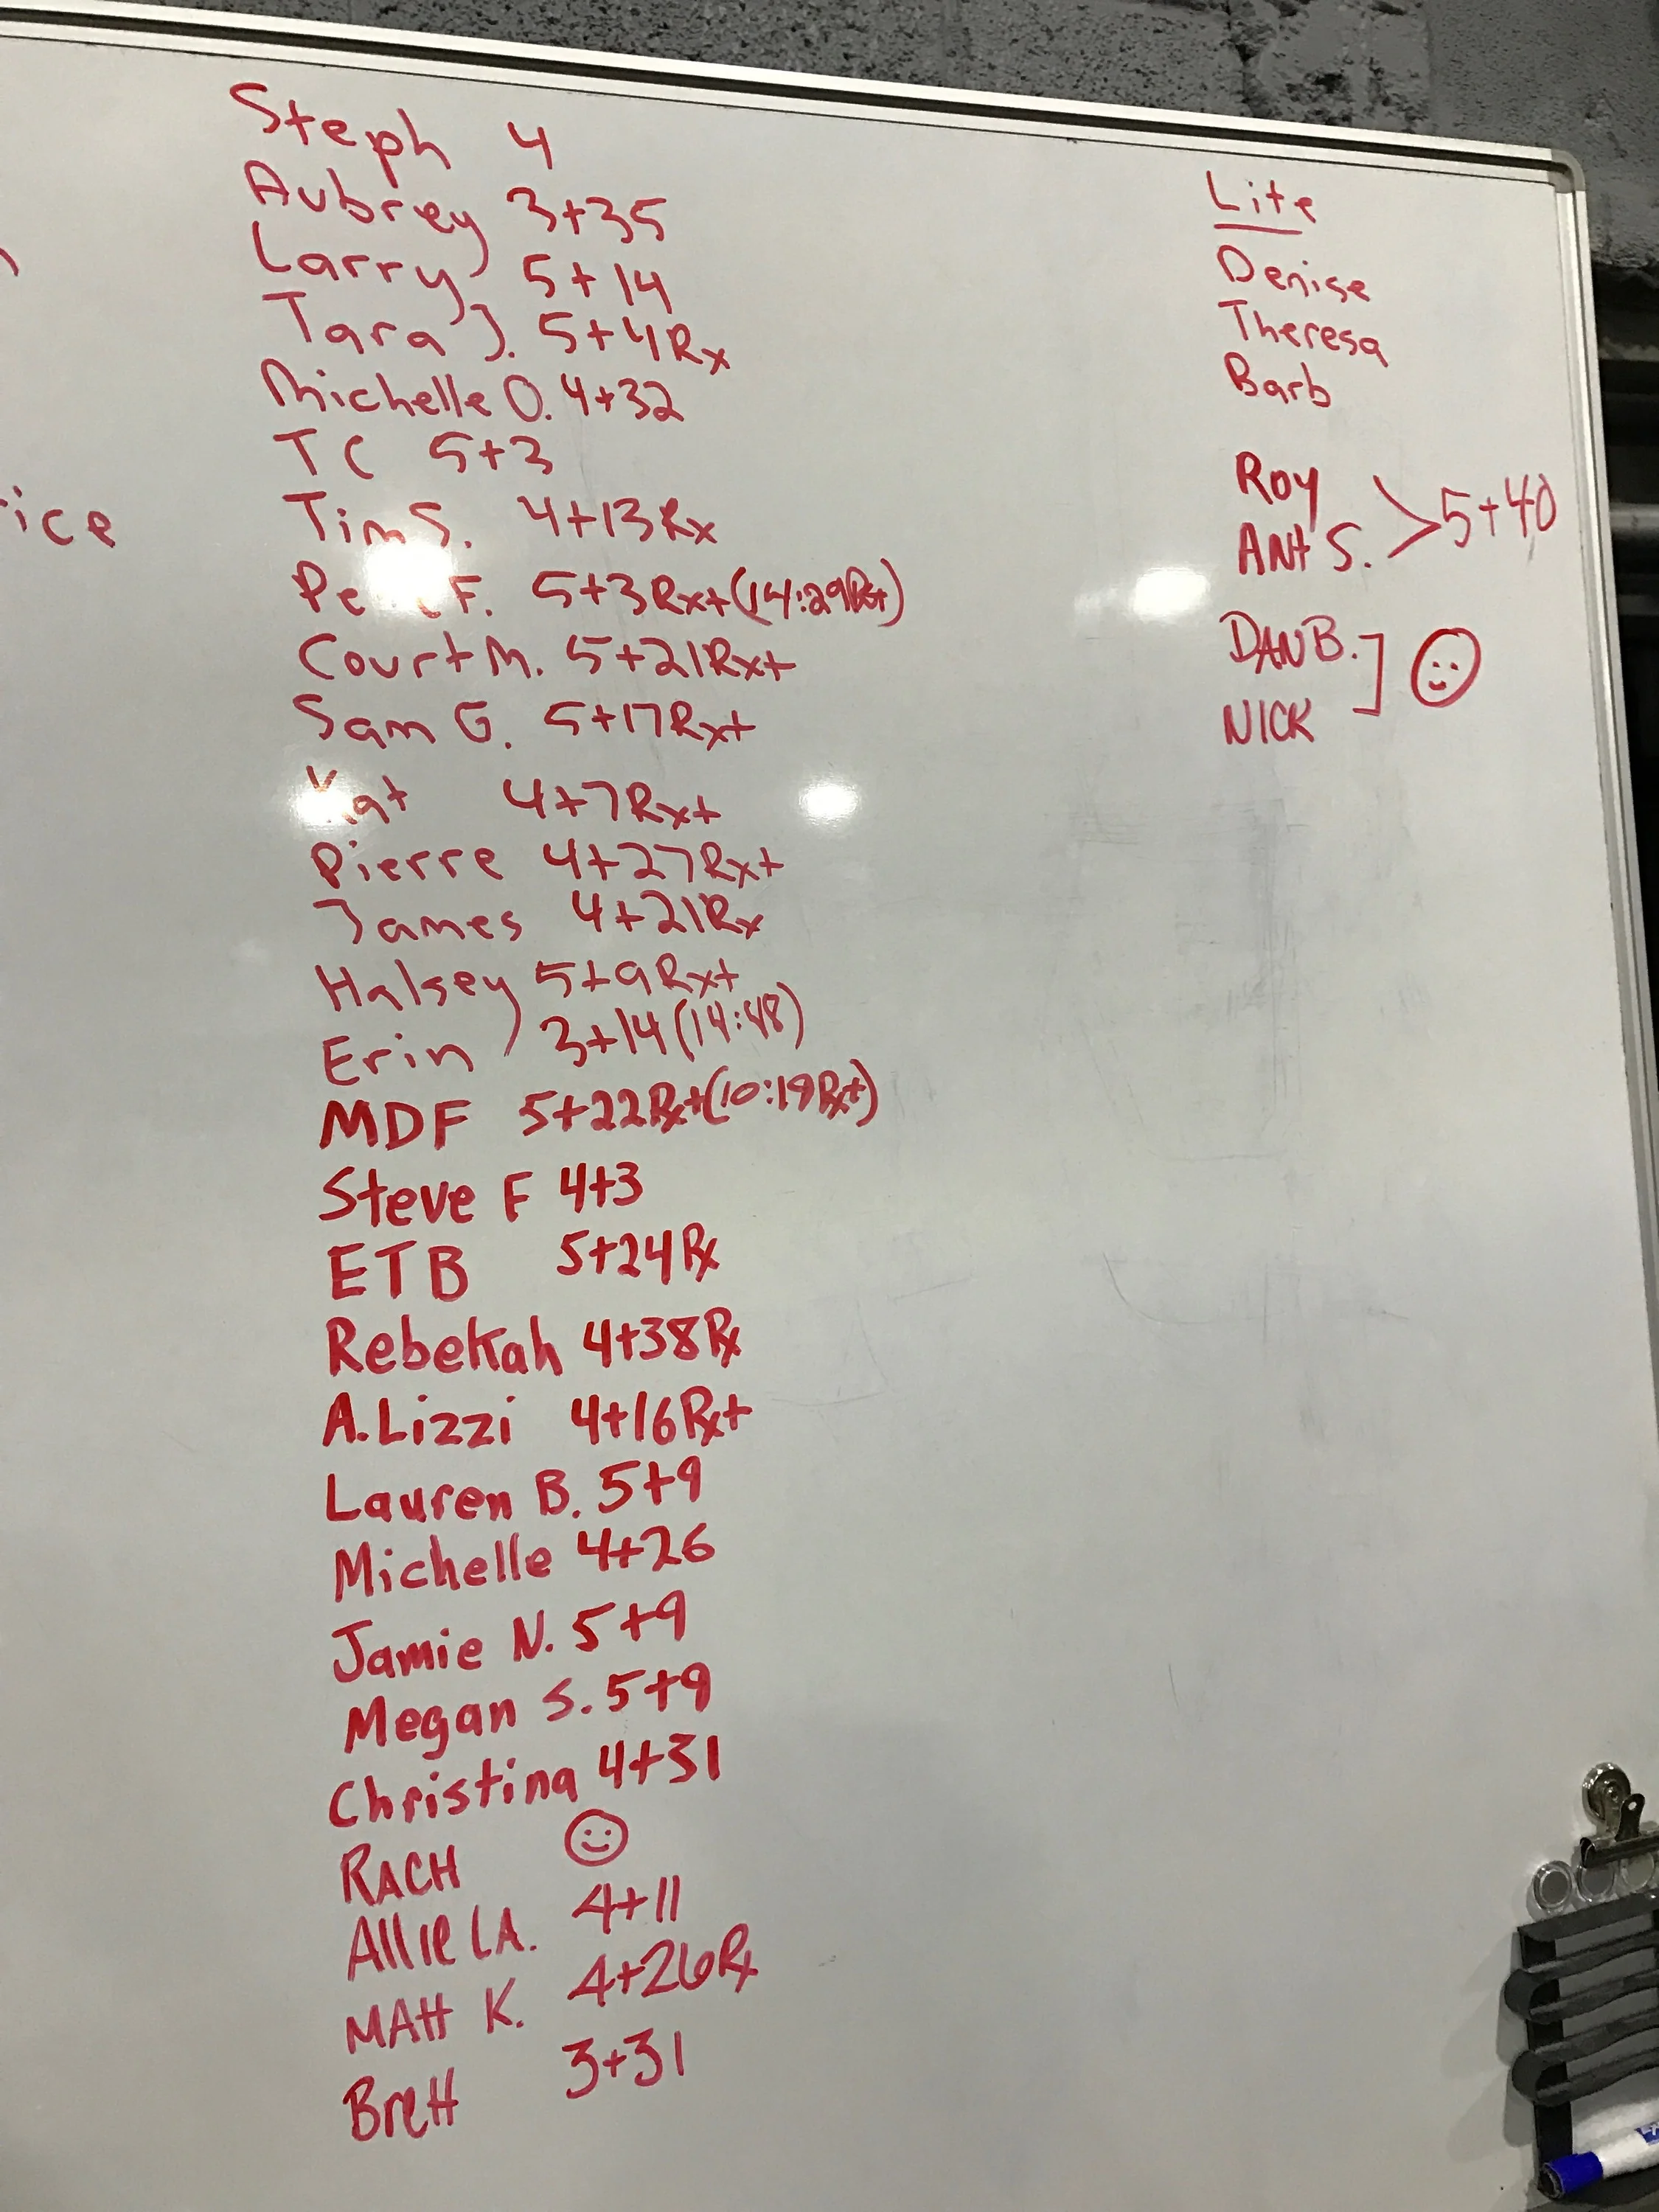 ice
Steph 4
Aubrey 3+35
Larry 5+14
Tara J. 5+4Rx
Michelle O. 4+32
TC 5+3
Tim S. 4+13Rx
F. 5+3Rx+(14:29Rx+)
Court M. 5+21Rx+
Sam G. 5+17Rx+
Kat 4+7Rx+
Pierre 4+27Rx+
James 4+21Rx
Halsey 5+9Rx+
Erin 3+14(14:48)
MDF 5+22Rx+(10:19Rx+)
Steve F 4+3
ETB 5+24Rx
Rebekah 4+38Rx
A.Lizzi 4+16Rx+
Lauren B. 5+9
Michelle 4+26
Jamie N. 5+9
Megan S. 5+9
Christina 4+31
RACH
Allie LA. 4+11
MAtt K. 4+26Rx
Brett 3+31
Lite
Denise
Theresa
Barb
Roy
ANt S. >5+40
DAN B.
NICK